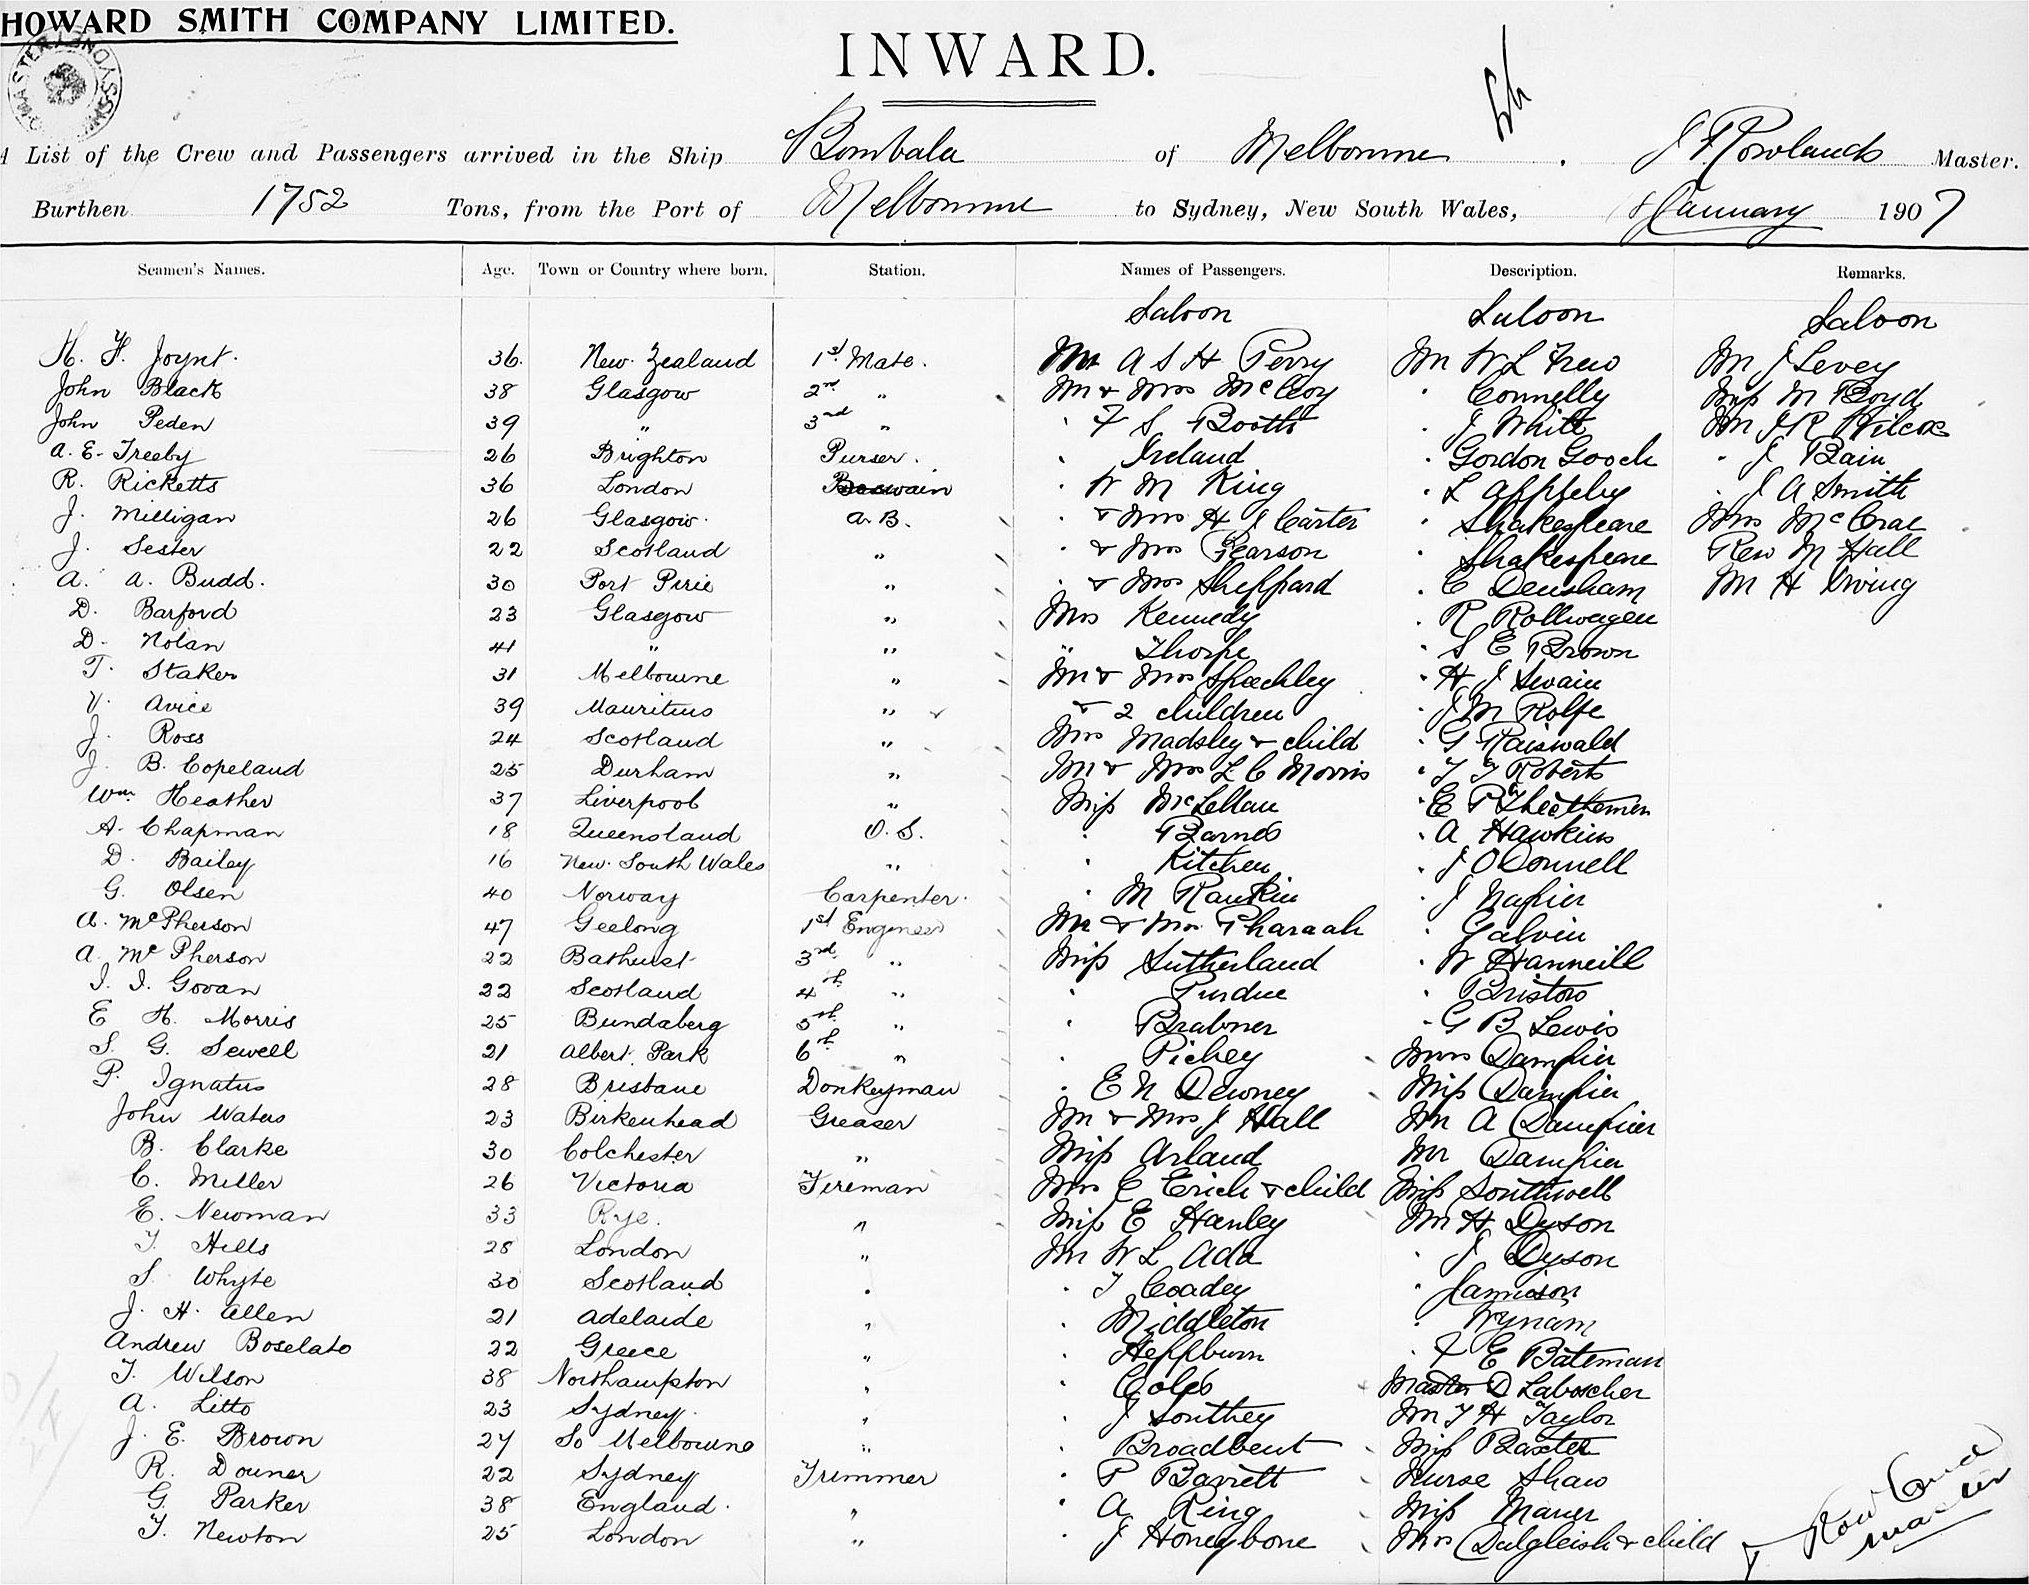 HOWARD SMITH COMPANY LIMITED.
INWARD.
A List of the Crew and Passengers arrived in the Ship Bombala of Melbourne J F Rowlands Master.
Burthen 1752 Tons, from the Port of Melbourne to Sydney, New South Wales, January 1907
Seamen's Names. Age. Town or Country where born. Station. Names of Passengers. Description. Remarks.
Saloon Saloon Saloon
Joynt. 36. New Zealand 1st Mate. Mr A S H Perry Mr W L Frew Mr J Levey
John Black 38 Glasgow 2nd " Mr & Mrs McCloy " Connelly Miss M Boyd
John Peden 39 " 3rd " " F S Booth " J White Mr J R Wilcox
A. E. Treeby 26 Brighton Purser. " Ireland " Gordon Gooch " J Bain
R. Ricketts 36 London Boswain " W M King " L Appleby " J A Smith
J. Milligan 26 Glasgow. A. B. " & Mrs H J Carter " Shakespeare Mrs McCrae
J. Sester 22 Scotland " " & Mrs Pearson " Shakespeare Rev M Hall
A. A. Budd. 30 Port Pirie " " & Mrs Sheppard " C Densham Mr H Irving
D. Barford 23 Glasgow " Mrs Kennedy " R Rollwagen
D. Nolan 41 " " " Thorpe " S E Brown
T. Staker 31 Melbourne " Mr & Mrs Speechley " H J Swain
V. Avice 39 Mauritius " & 2 children " J M Rolfe
J. Ross 24 Scotland " Mrs Madsley & child " G Raiswald
J. B. Copeland 25 Durham " Mr & Mrs L C Morris " T J Roberts
Wm Heather 37 Liverpool " Miss McLellan " E P
A. Chapman 18 Queensland O. S. " Barnes " A Hawkins
D. Bailey 16 New South Wales " " Kitchen " J O'Donnell
G. Olsen 40 Norway Carpenter. " M Rankin " J Napier
A. McPherson 47 Geelong 1st Engineer Mr & Mrs Pharaah " Galvin
A. McPherson 22 Bathurst 3rd " Miss Sutherland " W Hanneill
I. I. Govan 22 Scotland 4th " " Purdue " Bristow
E H. Morris 25 Bundaberg 5th " " Brabner " G B Lewis
S. G. Sewell 21 Albert Park 6th " " Pichey Mrs Dampier
P. Ignatus 28 Brisbane Donkeyman " E N Dewney Miss Dampier
John Waters 23 Birkenhead Greaser Mr & Mrs J Hall Mr A Dampier
B. Clarke 30 Colchester " Miss Arland Mr Dampier
C. Miller 26 Victoria Fireman Mrs E Erich & child Miss Southwell
E. Newman 33 Rye. " Miss E Hanley Mr H Dyson
T. Hills 28 London " Mr W L Ada " J Dyson
S. Whyte 30 Scotland " " T Coadey " Jamieson
J. H. Allen 21 Adelaide " " Middleton " Wynam
Andrew Boselato 22 Greece " " Heppburn " F E Bateman
T. Wilson 38 Northampton " " Coles Master D Laboscher
A. Litto 23 Sydney. " " J Southey Mr T H Taylor
J. E. Brown 27 So Melbourne " " Broadbent Miss Baxter
R. Douner 22 Sydney Trimmer " P Barrett Nurse Shaw
G. Parker 38 England. " " A Ring Miss Maner
T. Newton 25 London " " J Honeybone Mrs Dalgleish & child